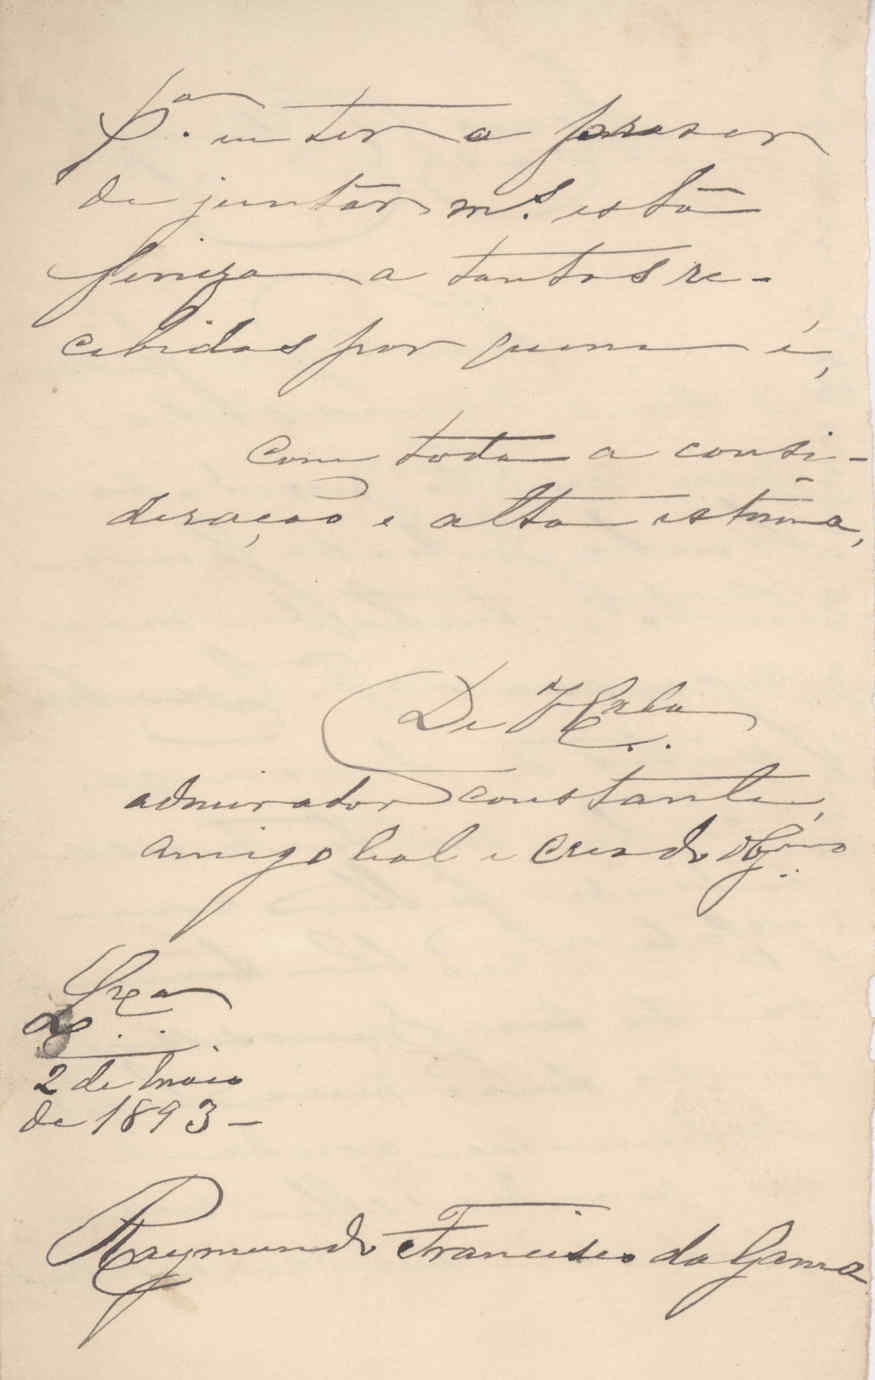 Pª. eu ter o praser
de juntar m.s esta
fineza a tantos re-
cebidas por quem é,
com toda a consi-
deração e alta estima,
De V Exa.
admirador constante,
amigo leal e creado obgmo
2 de Maio
de 1893 -
Raymundo Francisco da Gama